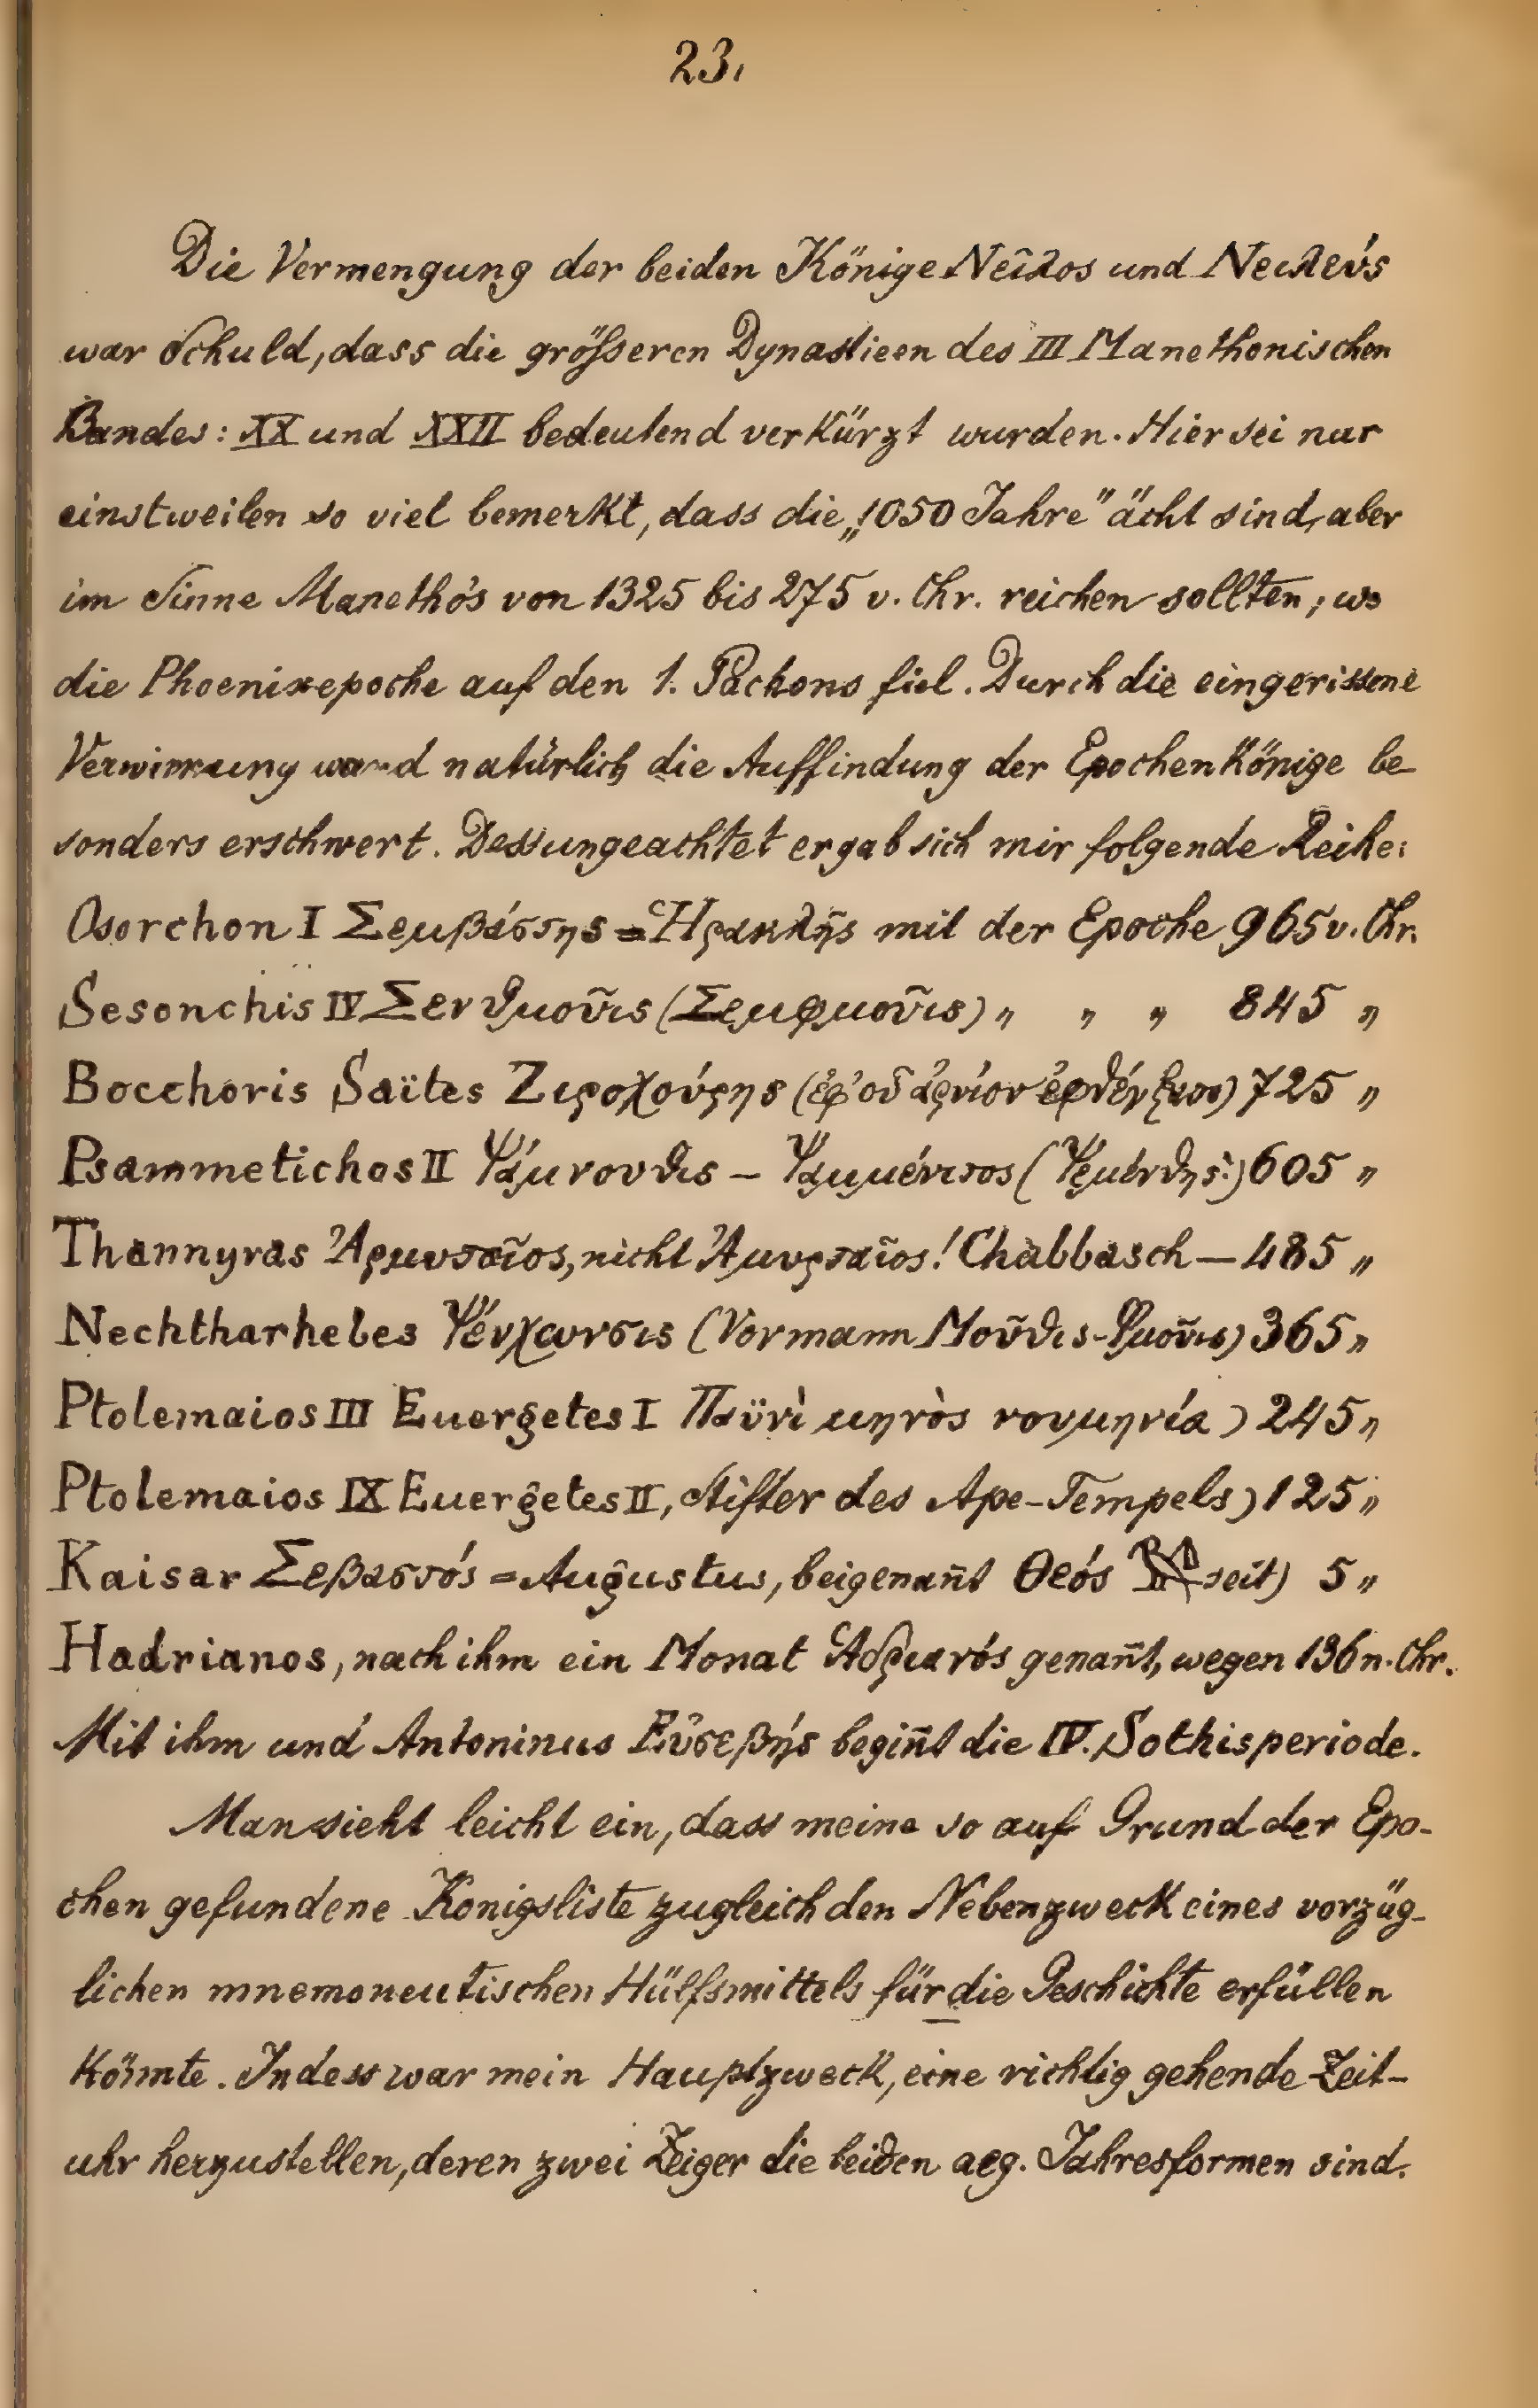 23.
Die Vermengung der beiden Könige Νεῖλος und Νειλεύς
war Schuld, dass die größeren Dynastieen des III Manethonischen
Bandes: XX und XXII bedeutend verkürzt wurden. Hier sei nur
einstweilen so viel bemerkt, dass die „1050 Jahre" ächt sind, aber
im Sinne Manethó's von 1325 bis 275 v. Chr. reichen sollten, wo
die Phoenixepoche auf den 1. Pachons fiel. Durch die eingerissene
Verwirrung ward natürlich die Auffindung der Epochenkönige be-
sonders erschwert. Dessungeachtet ergab sich mir folgende Reihe:
Osorchon I Σεμβάστης = Ἡρακλῆς mit der Epoche 965 v. Chr.
Sesonchis IV Σενθμοῦις (Σεμφμοῦις) „ „ „ 845 „
Bocchoris Saïtes (ἐφ' οὗ ἀρνίον ἐφθέγξατο) 725 „
Psammetichos II Ψάμουθις – 605 „
Thannyras Ἀρμυσταῖος, nicht Ἀμυρταῖος! Chabbasch — 485 „
Nechtharhebes (Vormann Μοῦθις-Φμοῦις) 365 „
Ptolemaios III Euergetes I Παϋνὶ μηνὸς νουμηνία) 245 „
Ptolemaios IX Euergetes II, Stifter des Ape-Tempels) 125 „
Kaisar Σεβαστός = Augustus, beigenan̄t Θεός seit) 5 „
Hadrianos, nach ihm ein Monat Ἁδριανός genan̄t, wegen 136 n. Chr.
Mit ihm und Antoninus Εὐσεβής begin̄t die IV. Sothisperiode.
Man sieht leicht ein, dass meine so auf Grund der Epo-
chen gefundene Königsliste zugleich den Nebenzweck eines vorzüg-
lichen mnemoneutischen Hülfsmittels für die Geschichte erfüllen
könnte. Indess war mein Hauptzweck, eine richtig gehende Zeit-
uhr herzustellen, deren zwei Zeiger die beiden aeg. Jahresformen sind.